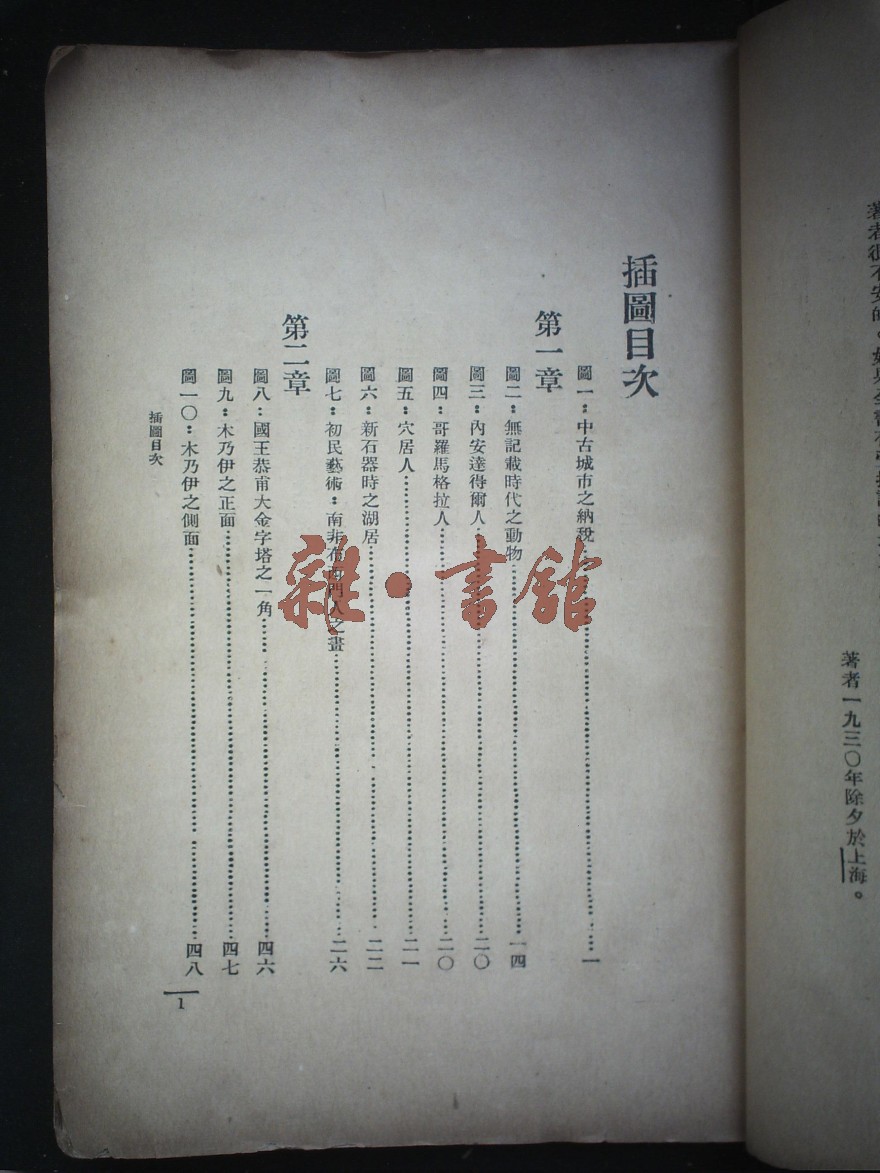 著者很不安的。如果
著者一九三〇年除夕於上海。
插圖目次
圖一：中古城市之納稅……一
第一章
圖二：無記載時代之動物……一四
圖三：內安達得爾人……二〇
圖四：哥羅馬格拉人……二〇
圖五：穴居人……二一
圖六：新石器時之湖居……二二
圖七：初民藝術：南非布西門人之畫……二六
第二章
圖八：國王恭甫大金字塔之一角……四六
圖九：木乃伊之正面……四七
圖一〇：木乃伊之側面……四八
插圖目次
1
雜·書館